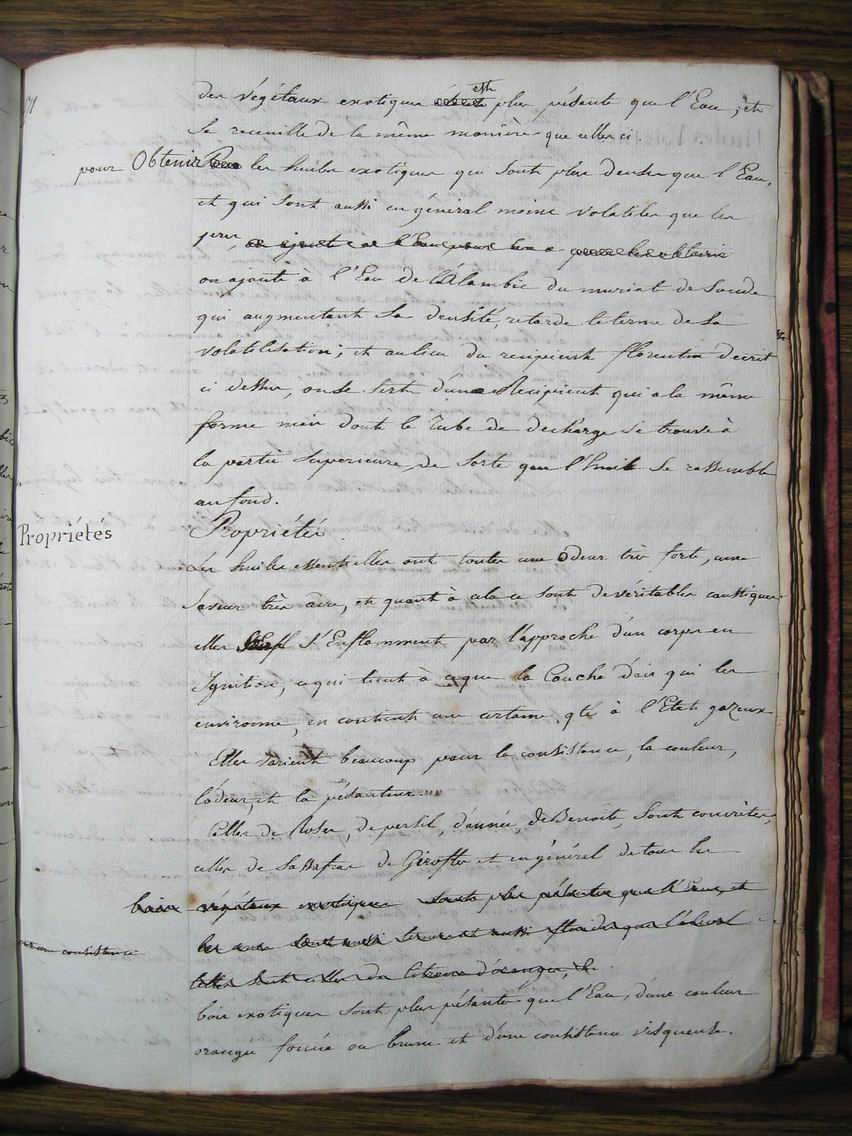 des végétaux exotiques est plus pésante que l'Eau, et
se receuille de la même manière que celles ci.
pour Obtenir les huiles exotiques qui sont plus denses que l'Eau,
et qui sont aussi en général moins volatiles que les
on ajoute à l'Eau de l'Alambic du muriate de Soude
qui augmentant sa densité, retarde le terme de sa
volatilisation; et au lieu du recipient florentin decrit
ci dessus, on se sert d'un Recipient qui a la même
forme mais dont le Tube de decharge se trouve à
la partie Superieure de sorte que l'huile se rassemble
au fond.
Propriétés
Propriétés
Les huiles essentielles ont toutes une Odeur très forte, une
Saveur très acre, et quant à cela ce sont de véritables caustiques
elles S'Enflamment par l'approche d'un corps en
Ignition, ce qui tient à ce que la Couche d'air qui les
environne, en contient une certaine qté à l'Etat gazeux
Elles varient beaucoup pour la consistance, la couleur,
l'odeur, et la pésanteur.
Celles de Roses, de persil, d'aunée, de Benoite, sont concrètes,
celles de Sassafras de Gérofle et en général de tous les
bois végétaux exotiques sont plus pésantes que l'Eau, et
ont une consistance
celles sont celles du citron d'oranger,
bois exotiques sont plus pésantes que l'Eau, d'une couleur
orangée foncée ou brune et d'une consistance visqueuse.